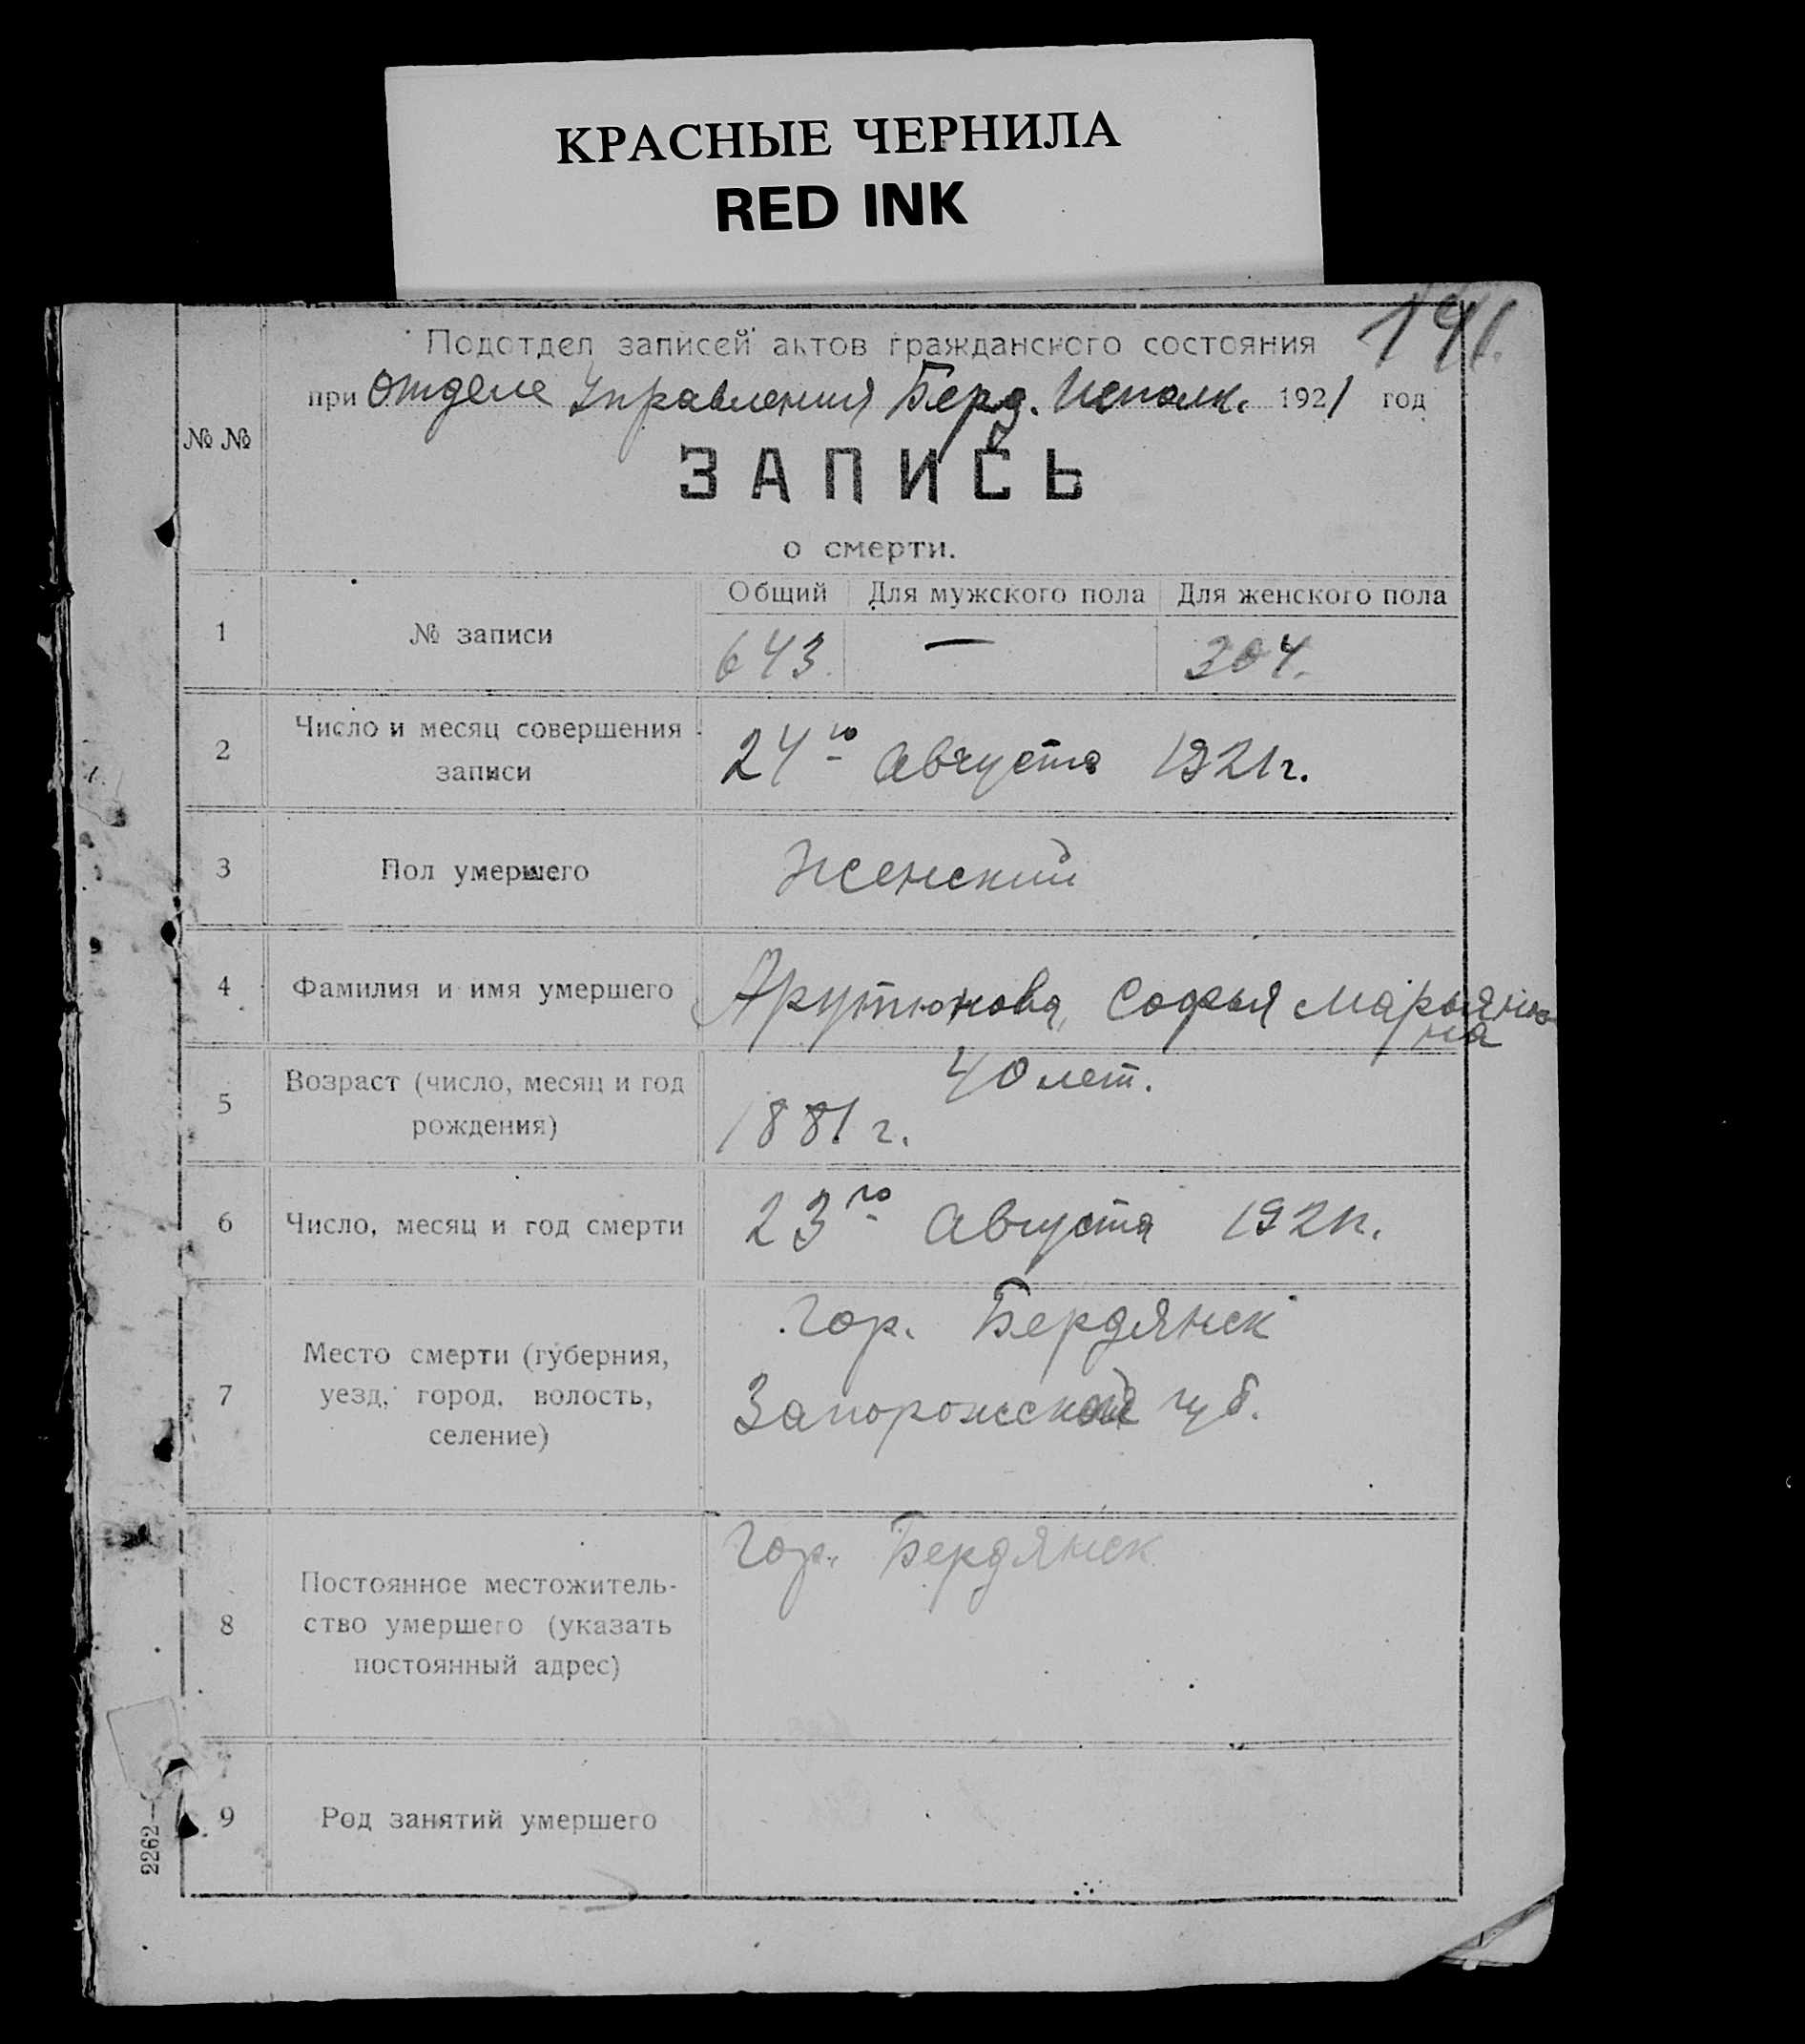 КРАСНЫЕ ЧЕРНИЛА
RED INK
191.
Подотдел записей актов гражданского состояния
при отделе Управления Берд. Исполк. 1921 год
№ №
ЗАПИСЬ
о смерти.
Общий Для мужского пола Для женского пола
1 № записи 643. — 304.
2 Число и месяц совершения
записи
24го Августа 1921г.
3 Пол умершего Женский
4 Фамилия и имя умершего Арутюнова, Софья Марьянов
на
5 Возраст (число, месяц и год
рождения)
40 лет.
1881 г.
6 Число, месяц и год смерти 23го Августа 1921г.
7 Место смерти (губерния,
уезд, город, волость,
селение)
Гор. Бердянск
Запорожской губ.
8 Постоянное местожитель-
ство умершего (указать
постоянный адрес)
Гор. Бердянск
9 Род занятий умершего
2262—